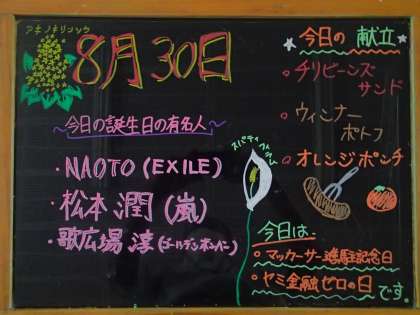 アキノキリンソウ
8月30日
~今日の誕生日の有名人~
・NAOTO(EXILE)
・松本 潤(嵐)
・歌広場 淳(ゴールデンボンバー)
スパティフィラム
今日の献立
・チリビーンズ
サンド
・ウィンナー
ポトフ
・オレンジポンチ
今日は、
・マッカーサー進駐記念日
・ヤミ金融ゼロの日です。